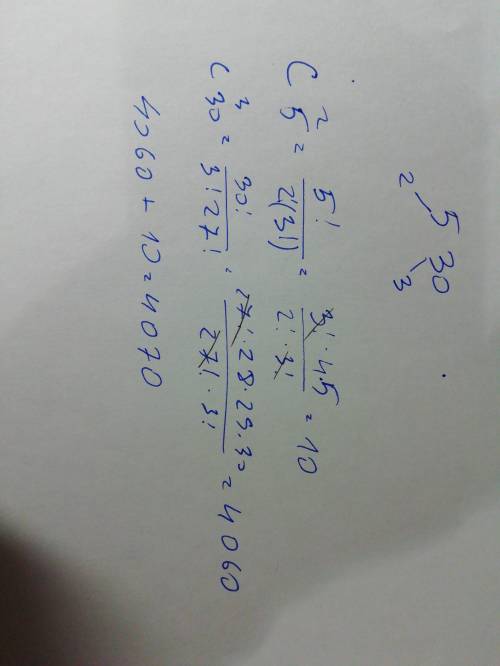 5 30
2 3
C²₅ = 5! / 2!(3!) = 3! · 4 5 / 2! · 3! = 10
C³₃₀ = 30! / 3! 27! = 27! · 28 · 29 · 30 / 27! · 3! = 4060
4060 + 10 = 4070